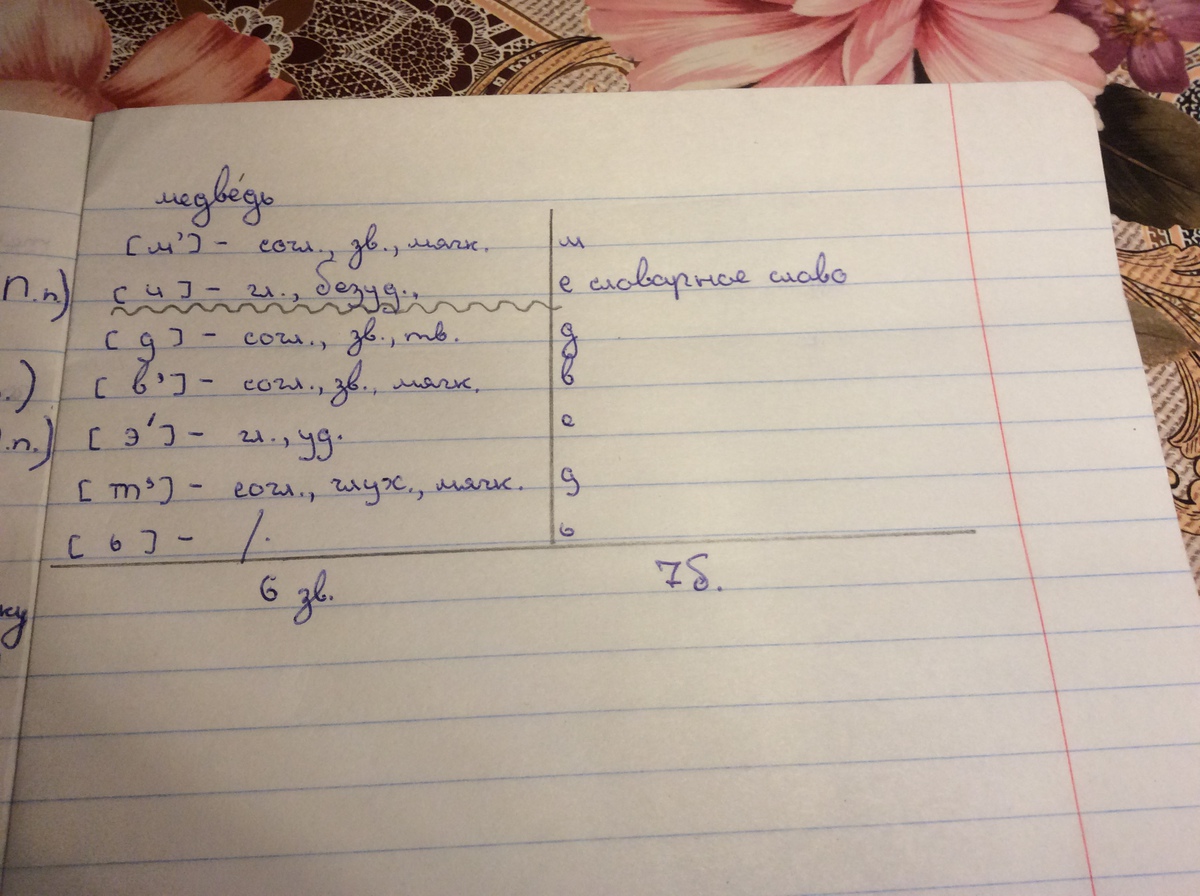 медве́дь
[м'] - согл., зв., мягк. | м
П.п) [и] - гл., безуд., | е словарное слово
[д] - согл., зв., тв. | д
.) [в'] - согл., зв., мягк. | в
.п.) [э'] - гл., уд. | е
[т'] - согл., глух., мягк. | д
[ь] - /. | ь
6 зв. 7б.
ку